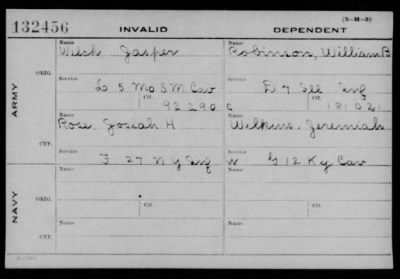 (3-H-3)
132456 INVALID DEPENDENT
Name Name
Welch, Jasper Robinson, William B
ORIG. Service Service
L 5 Mo S M Cav D 7 Ill Inf
Ctf. Ctf.
92290 C 181021
ARMY
Name Name
Rose, Josiah H Wilkins, Jeremiah
CTF. Service Service
F 27 N Y Inf W G 12 Ky Cav
Name Name
NAVY
ORIG. Service Service
Ctf. Ctf.
Name Name
CTF. Service Service